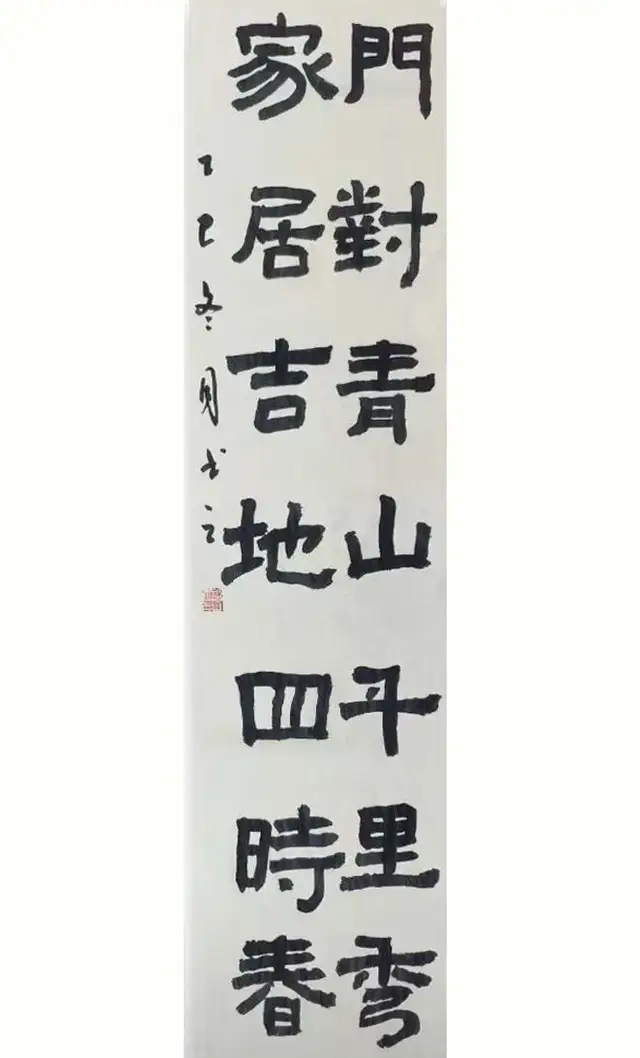 門對青山千里秀
家居吉地四時春
乙巳冬月书之